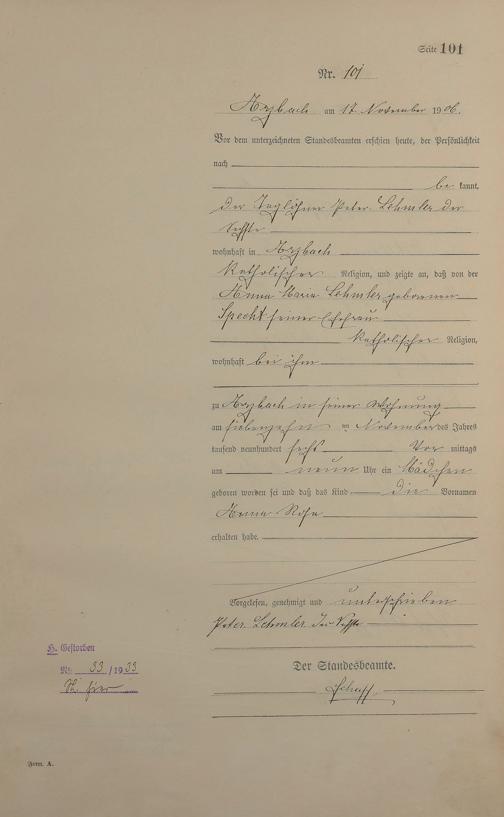 Seite 101
Nr. 101
Arzbach am 17 November 1906.
Vor dem unterzeichneten Standesbeamten erschien heute, der Persönlichkeit
nach
be kannt,
der Taglöhner Peter Lehmler der
Sechste
wohnhaft in Arzbach
katholischer Religion, und zeigte an, daß von der
Anna Maria Lehmler geborenen
Specht seiner Ehefrau
katholischer Religion,
wohnhaft bei ihm
zu Arzbach in seiner Wohnung
am siebenzehn ten November des Jahres
tausend neunhundert sechs Vor mittags
um neun Uhr ein Mädchen
geboren worden sei und daß das Kind die Vornamen
Anna Rosa
erhalten habe.
Vorgelesen, genehmigt und unterschrieben
Peter Lehmler der Sechste
Der Standesbeamte.
H. Gestorben
Nr. 33 / 1933
St. hier
Form. A.